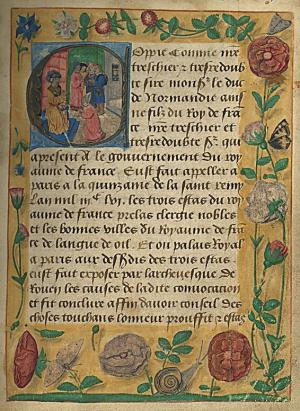 Oppie Comme nre
treschier & tresredoub
te sire monsr le duc
de Normandie ains
ne filz du Roy de fra
ce nre treschier et
tresredoubte sr qui
apresent a le gouvernement du roy
aulme de france Eust fait appeller a
paris a la quinzaine de la saint remy
lan mil iijc lvi, les trois estas du roy
aume de france prelas clergie nobles
et les bonnes villes du Royaume de fran
ce de langue de oil. Et ou palais Royal
a paris aux desdis des trois estas
eust fait exposer par larchevesque de
Rouen les causes de ladite convocation
et fit conclure affin davoir conseil des
choses touchans lonneur prouffit & estas